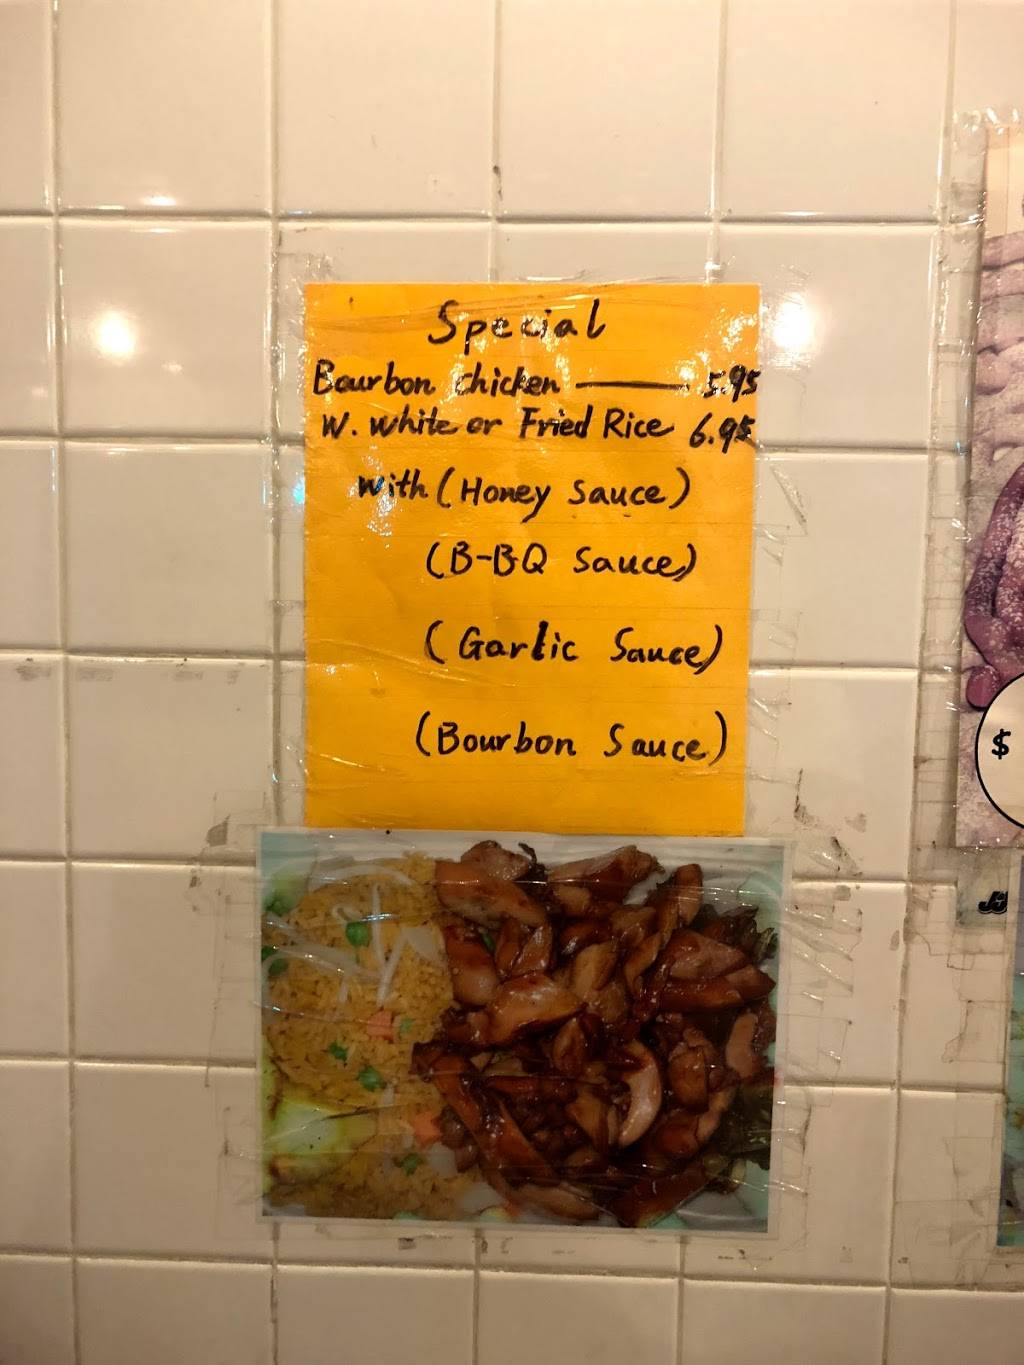 Special
Bourbon chicken — 5.95
W. white or Fried Rice 6.95
with (Honey sauce)
(B-BQ sauce)
(Garlic Sauce)
(Bourbon Sauce)
$